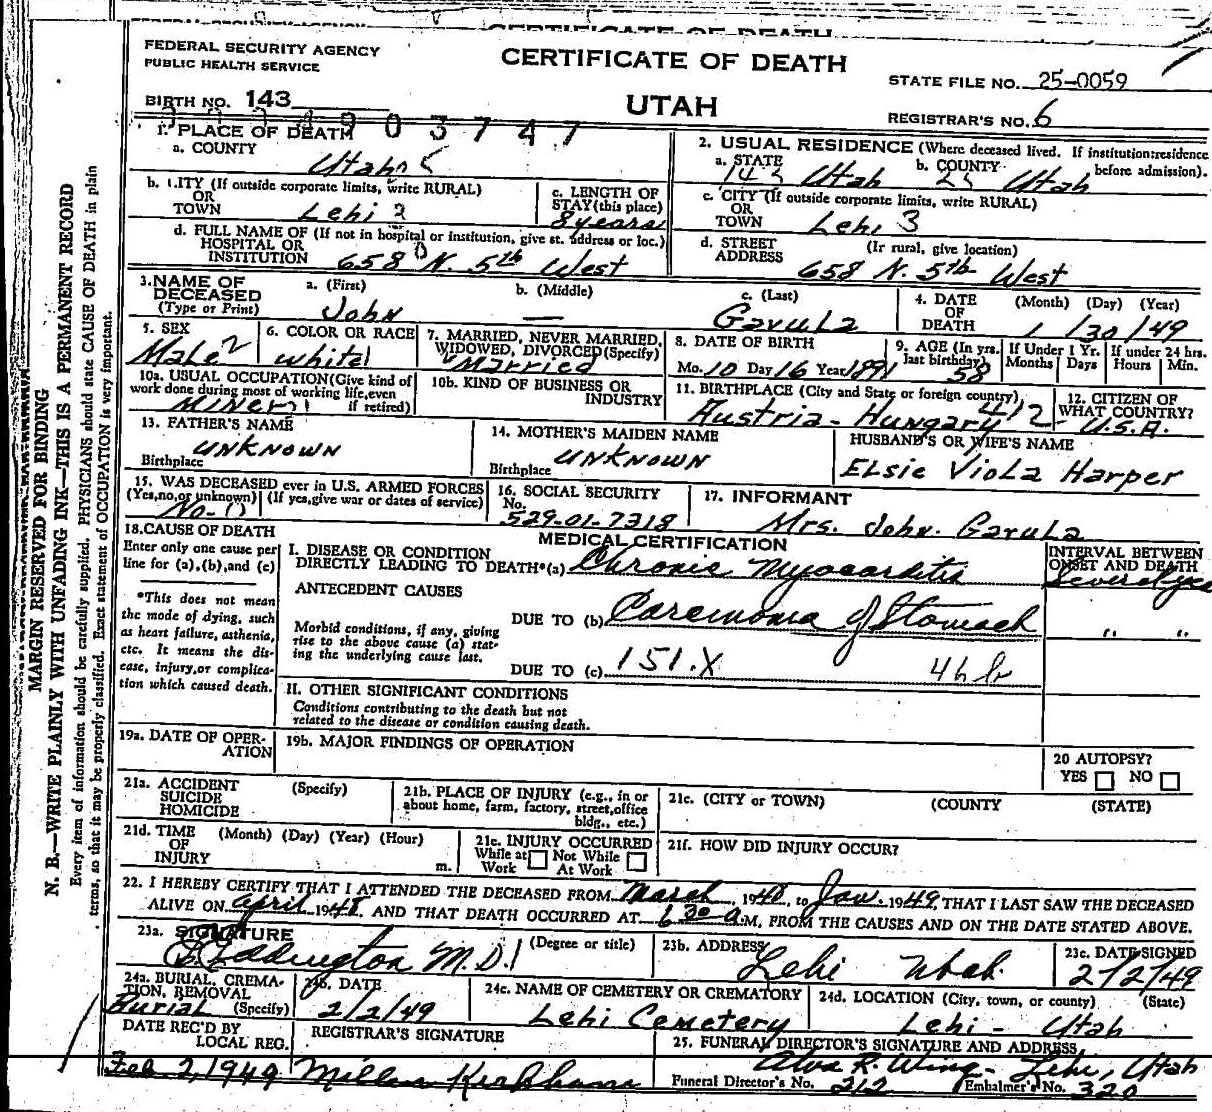 CERTIFICATE OF DEATH
FEDERAL SECURITY AGENCY
PUBLIC HEALTH SERVICE
CERTIFICATE OF DEATH
STATE FILE NO. 25-0059
BIRTH NO. 143
UTAH
REGISTRAR'S NO. 6
903747
1. PLACE OF DEATH
a. COUNTY Utah
2. USUAL RESIDENCE (Where deceased lived. If institution: residence before admission).
a. STATE 143 Utah b. COUNTY 25 Utah
b. CITY (If outside corporate limits, write RURAL) OR TOWN Lehi 2
c. LENGTH OF STAY (this place) 8 years
c. CITY (If outside corporate limits, write RURAL) OR TOWN Lehi 3
d. FULL NAME OF (If not in hospital or institution, give st. address or loc.) HOSPITAL OR INSTITUTION 658 N. 5th West
d. STREET ADDRESS (If rural, give location) 658 N. 5th West
3. NAME OF DECEASED (Type or Print)
a. (First) John
b. (Middle) —
c. (Last) Gavula
4. DATE OF DEATH (Month) (Day) (Year) 1/30/49
5. SEX Male 2
6. COLOR OR RACE White 1
7. MARRIED, NEVER MARRIED, WIDOWED, DIVORCED (Specify) Married
8. DATE OF BIRTH Mo. 10 Day 16 Year 1891
9. AGE (In yrs. last birthday) 58
If Under 1 Yr. Months Days
If under 24 hrs. Hours Min.
10a. USUAL OCCUPATION (Give kind of work done during most of working life, even if retired) Miner
10b. KIND OF BUSINESS OR INDUSTRY
11. BIRTHPLACE (City and State or foreign country) Austria-Hungary 412
12. CITIZEN OF WHAT COUNTRY? U.S.A.
13. FATHER'S NAME UNKNOWN
Birthplace
14. MOTHER'S MAIDEN NAME UNKNOWN
Birthplace
HUSBAND'S OR WIFE'S NAME
Elsie Viola Harper
15. WAS DECEASED ever in U.S. ARMED FORCES
(Yes, no, or unknown) (If yes, give war or dates of service) No-0
16. SOCIAL SECURITY No. 529-01-7318
17. INFORMANT Mrs. John Gavula
18. CAUSE OF DEATH
Enter only one cause per line for (a), (b), and (c)
*This does not mean the mode of dying, such as heart failure, asthenia, etc. It means the disease, injury, or complication which caused death.
MEDICAL CERTIFICATION
INTERVAL BETWEEN ONSET AND DEATH
I. DISEASE OR CONDITION DIRECTLY LEADING TO DEATH* (a) Chronic Myocarditis Several yrs
ANTECEDENT CAUSES
Morbid conditions, if any, giving rise to the above cause (a) stating the underlying cause last.
DUE TO (b) Carcinoma of Stomach " "
DUE TO (c) 151.X
II. OTHER SIGNIFICANT CONDITIONS
Conditions contributing to the death but not related to the disease or condition causing death.
19a. DATE OF OPERATION
19b. MAJOR FINDINGS OF OPERATION
20 AUTOPSY? YES NO
21a. ACCIDENT SUICIDE HOMICIDE (Specify)
21b. PLACE OF INJURY (e.g., in or about home, farm, factory, street, office bldg., etc.)
21c. (CITY or TOWN) (COUNTY) (STATE)
21d. TIME OF INJURY (Month) (Day) (Year) (Hour) m.
21e. INJURY OCCURRED While at Work Not While At Work
21f. HOW DID INJURY OCCUR?
22. I HEREBY CERTIFY THAT I ATTENDED THE DECEASED FROM March, 1948, to Jan. 1949, THAT I LAST SAW THE DECEASED
ALIVE ON April 1948, AND THAT DEATH OCCURRED AT 6 30 a M, FROM THE CAUSES AND ON THE DATE STATED ABOVE.
23a. SIGNATURE (Degree or title) Eddington M.D.
23b. ADDRESS Lehi Utah
23c. DATE SIGNED 2/2/49
24a. BURIAL, CREMATION, REMOVAL (Specify) Burial
24b. DATE 2/2/49
24c. NAME OF CEMETERY OR CREMATORY Lehi Cemetery
24d. LOCATION (City, town, or county) (State) Lehi - Utah
DATE REC'D BY LOCAL REG. Feb 2, 1949
REGISTRAR'S SIGNATURE
25. FUNERAL DIRECTOR'S SIGNATURE AND ADDRESS
Alva R. Wing - Lehi, Utah
Funeral Director's No. 212 Embalmer's No. 320
MARGIN RESERVED FOR BINDING
N. B.—WRITE PLAINLY WITH UNFADING INK—THIS IS A PERMANENT RECORD
Every item of information should be carefully supplied. PHYSICIANS should state CAUSE OF DEATH in plain
terms, so that it may be properly classified. Exact statement of OCCUPATION is very important.